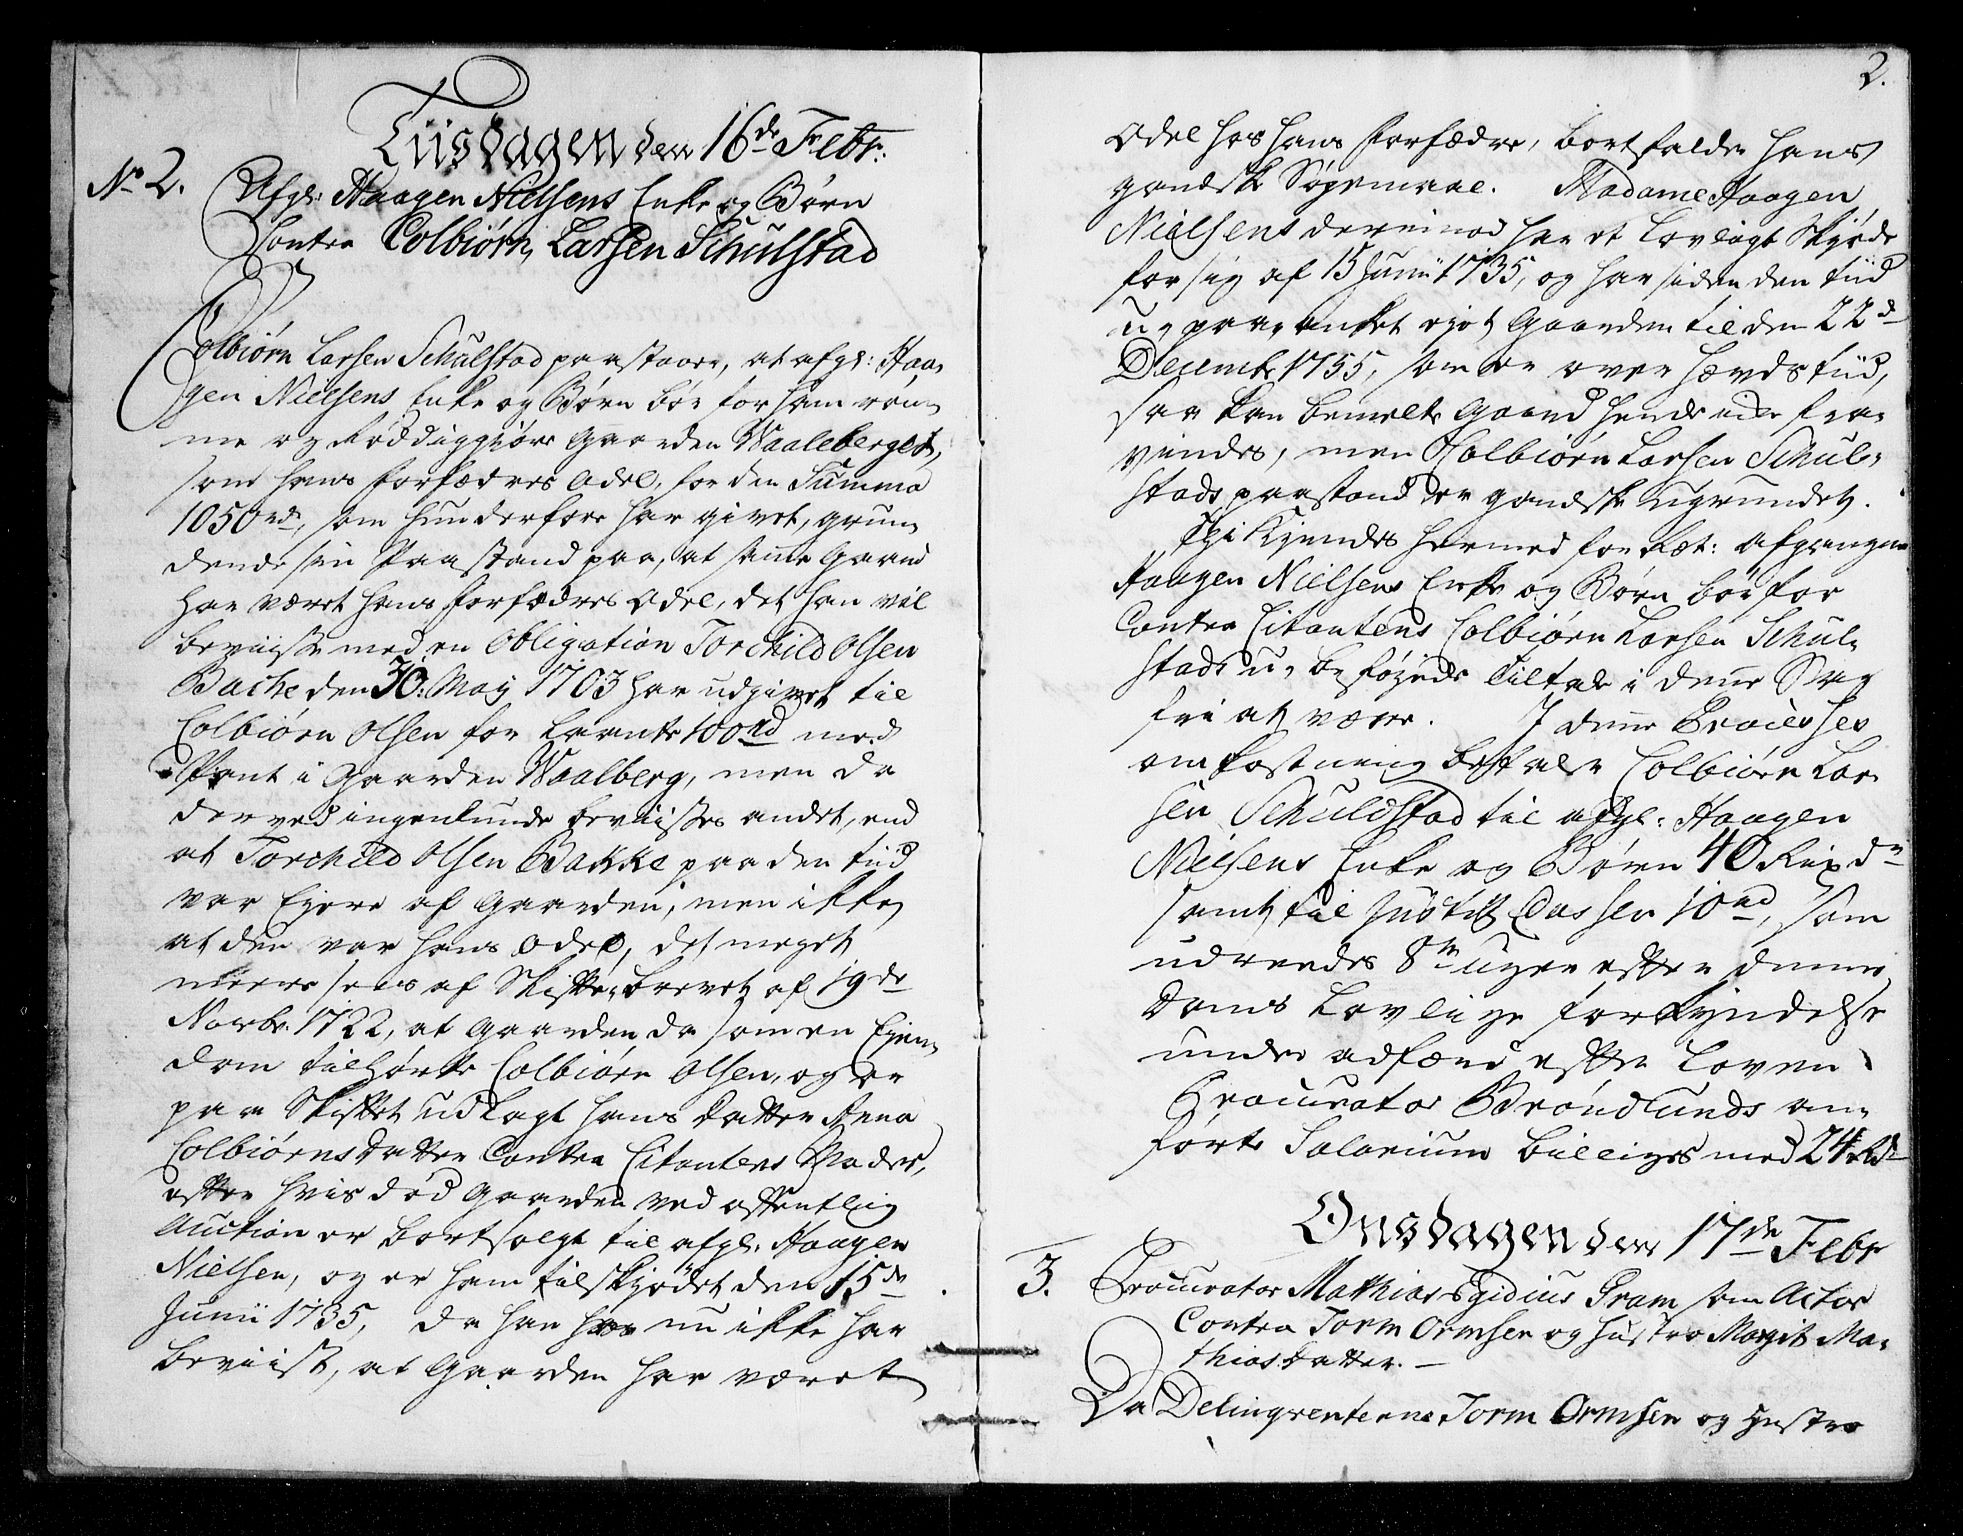 Tiisdagen den 16de Febr:
No 2. Afgl: Haagen Nielsens Enke og Børn
Contra Colbiørn Larsen Schulstad
Colbiørn Larsen Schulstad paastaaer, at afgl: Haa-
gen Nielsens Enke og Børn bør for ham røm-
me og Gaarden Waaleberget,
som hans Forfædres Odel, for den Summa
1050 rd, som hun derfore har givet, grun-
dende sin Paastand paa, at samme Gaard
har været hans Forfædres Odel, det han vil
beviise med en Obligation Torchild Olsen
Bache den 30: May 1703 har udgivet til
Colbiørn Olsen for laante 100 rd med
Pant i Gaarden Waalberg, men da
derved ingenlunde beviises andet, end
at Torchild Olsen Bakke paa den tiid
var Ejere af Gaarden, men ikke
at den var hans Odel, det meget
meere sees af Skifte-brevet af 19de
Novbr. 1722, at Gaarden da som en Ejen-
dom tilhørte Colbiørn Olsen, og er
paa Skiftet udlagt hans Datter Anna
Colbiørnsdatter Contra Citantens Moder,
efter hvis død Gaarden ved offentlig
Auction er bortsolgt til afgl. Haagen
Nielsen, og er ham tilskjødet den 15de
Junii 1735, da han nu ikke har
beviist, at Gaarden har været
2.
Odel hos hans Forfædre, bortfalder hans
gandske Søgemaal. Madame Haagen
Nielsens derimod har et lovligt Skjøde
for sig af 15 Junii 1735, og har siden den tiid
u-paa-anket ejet Gaarden til den 22de
Decembr 1755, som er over Hævds tiid,
saa kan bemelte Gaard hende ikke fra-
vindes, men Colbiørn Larsen Schul-
stads paastand er gandske ugrundet.
Thi Kjendes hermed for Ræt: afgangen
Haagen Nielsens Enke og Børn bør for
Contra Citantens Colbiørn Larsen Schul-
stads u-beføjede Tiltale i denne Sag
frie at være. I denne Processes
omkostning betaler Colbiørn Lar-
sen Schuldstad til afgl: Haagen
Nielsens Enke og Børn 40 Rixdr
samt til Justitz Cassen 10 rd, som
udreedes 8te uger efter denne
Doms lovlige forkyndelse
under adfærd efter Loven.
Procurator Brøndlunds an-
førte Salarium billiges med 24 Rd
Onsdagen den 17de Febr
3. Procurator Mathias Egidius Gram som Actor
Contra Torm Ormsen og Hustro Margit Ma-
thiasdatter. —
Da Delinqventerne Torm Ormsen og Hustro